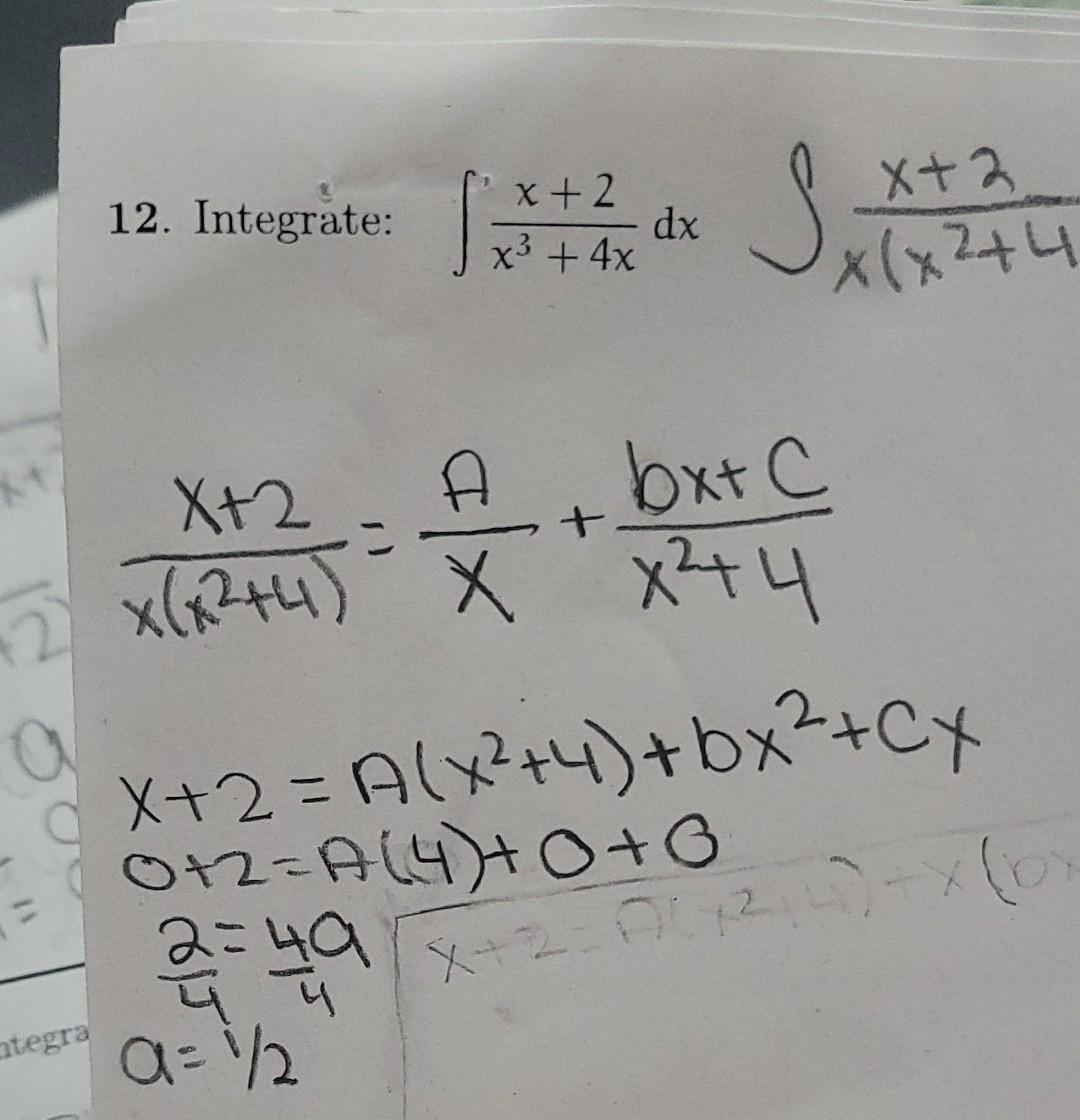 12. Integrate: ∫ x + 2 / x³ + 4x dx ∫ x+2 / x(x²+4
x+2 / x(x²+4) = A / x + bx+C / x²+4
x+2 = A(x²+4)+bx²+Cx
0+2=A(4)+0+0
x+2=A(x²+4)+x(bx
2/4 = 4a/4
a=1/2
ntegra